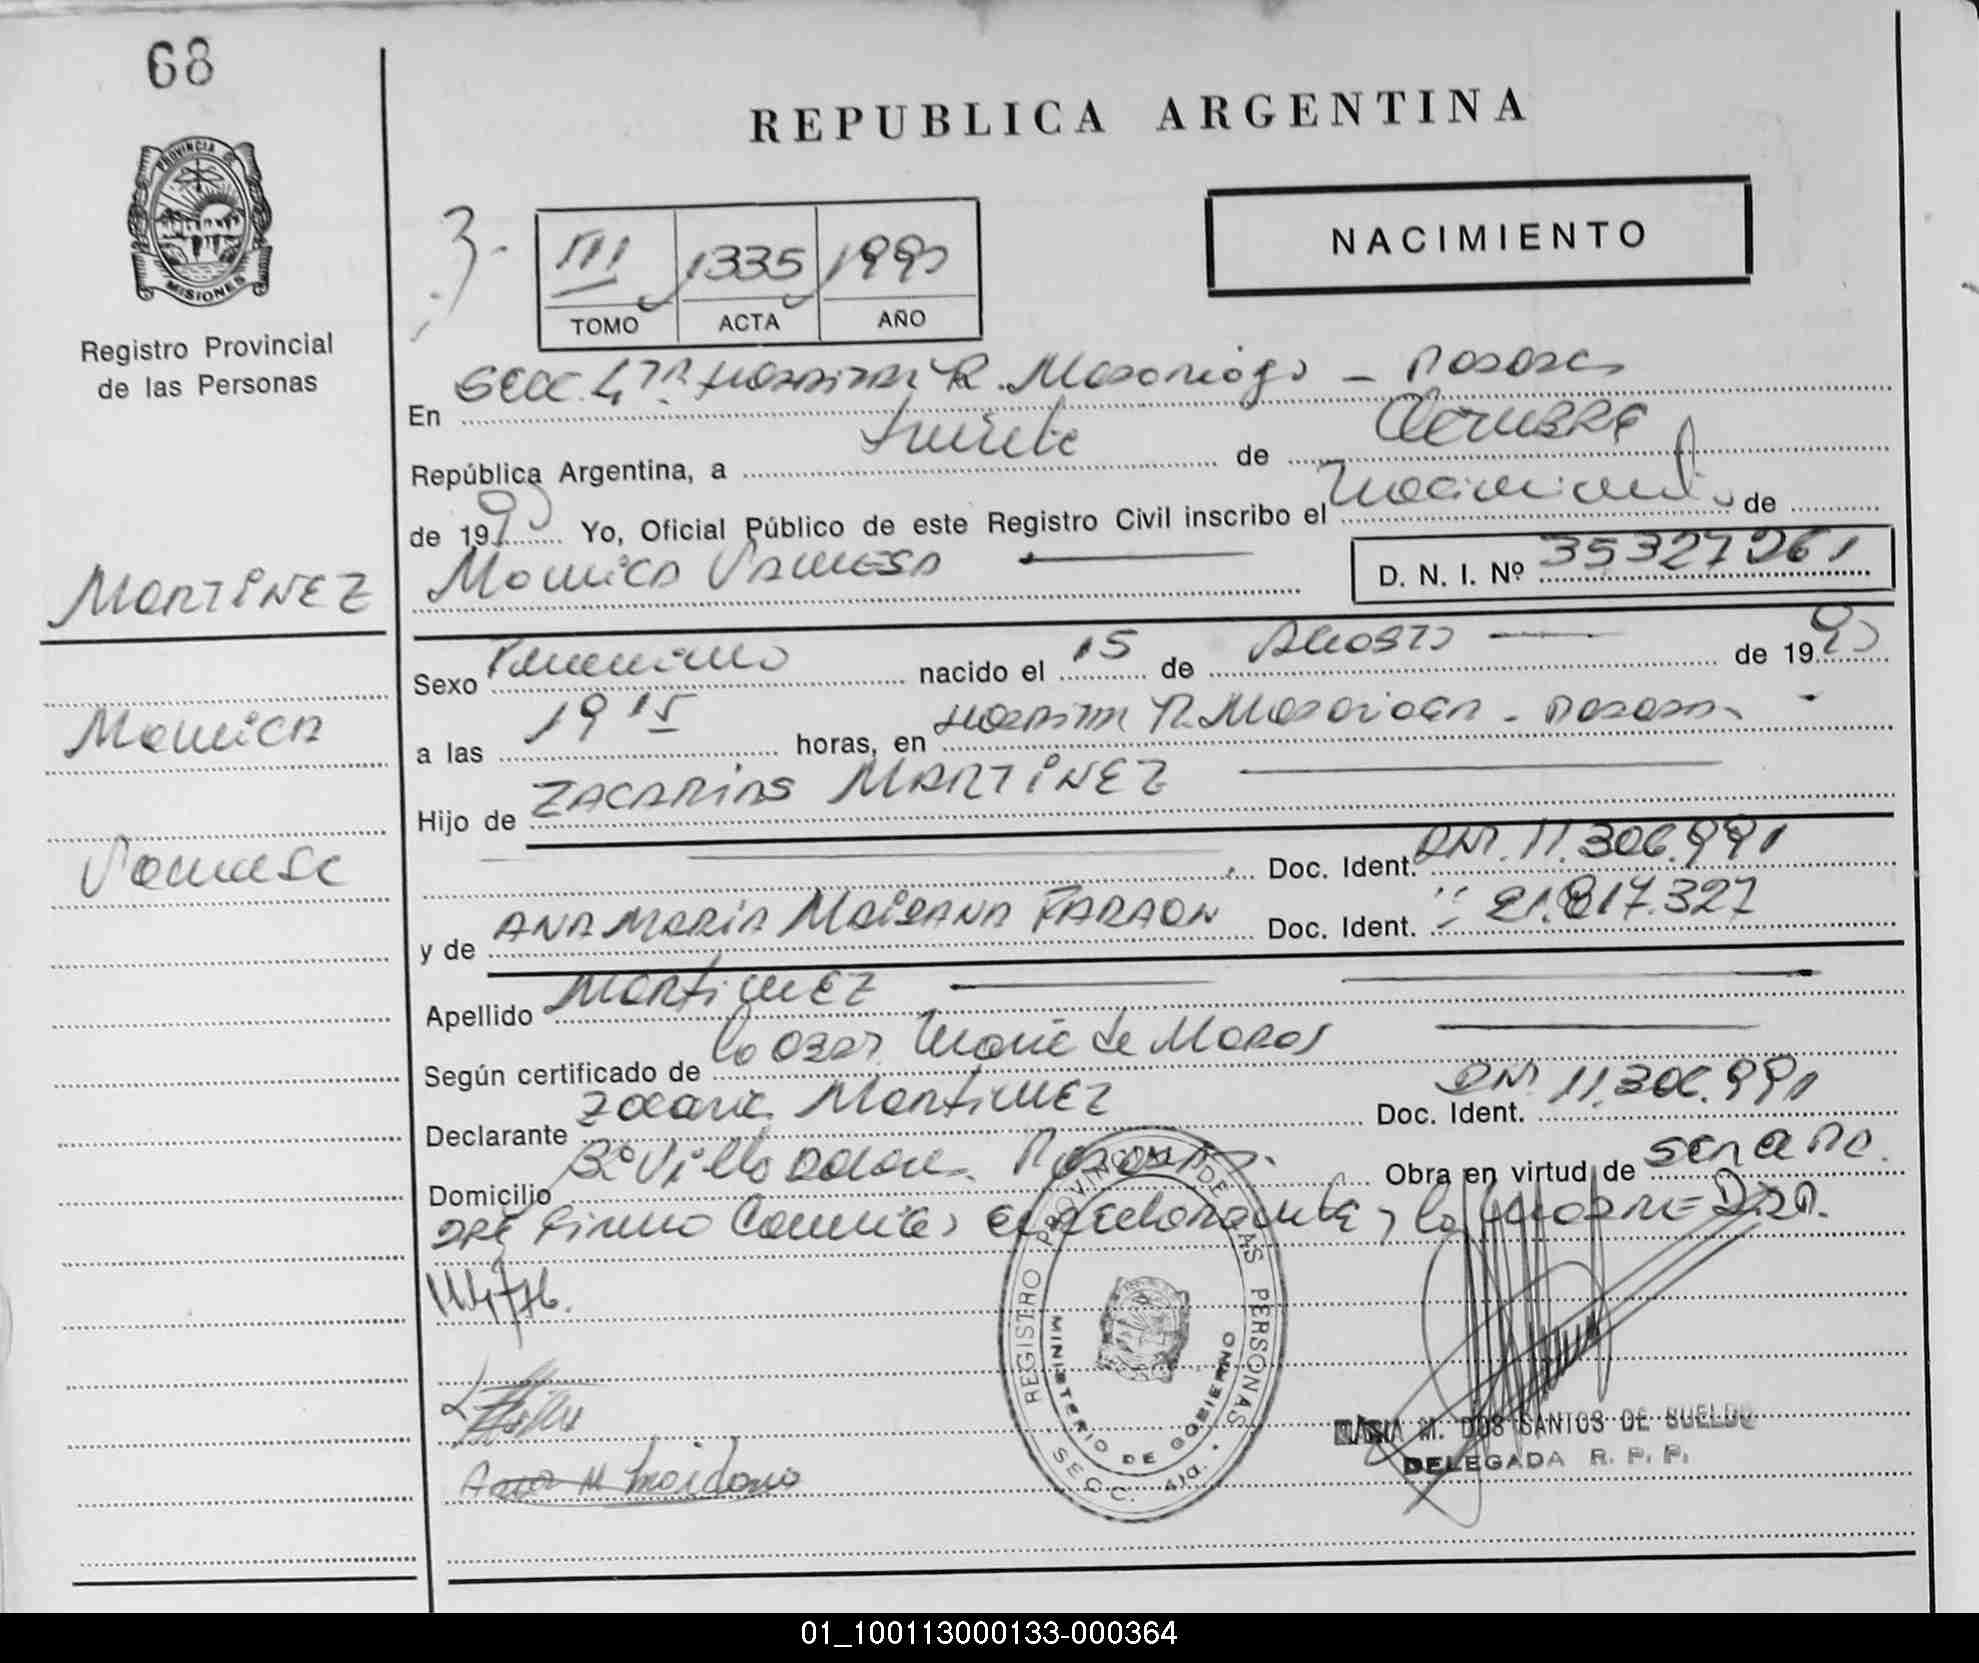 68
REPUBLICA ARGENTINA
PROVINCIA DE
MISIONES
Registro Provincial
de las Personas
NACIMIENTO
3-
III 1335 1990
TOMO ACTA AÑO
En SECC. 4ta. HOSPITAL R. Madariaga - Posadas
República Argentina, a de OCTUBRE
de 1990 Yo, Oficial Público de este Registro Civil inscribo el Nacimiento de
Monica Vanesa D. N. I. Nº 35327261
MARTINEZ
Monica
Vanesa
Sexo Femenino nacido el 15 de Agosto de 1990
a las 19 15 horas, en HOSPITAL R. Madariaga - Posadas -
Hijo de ZACARIAS MARTINEZ
Doc. Ident. DNI. 11.306.991
y de ANA MARIA MAIDANA FARAON Doc. Ident. " 21.817.327
Apellido Martinez
Según certificado de la Obst. Maria de Moros
Declarante Zacarias Martinez Doc. Ident. DNI 11.306.991
Domicilio Bº Villa Posadas. Obra en virtud de
firman Conmigo el declarante y la MADRE
Ana M Maidana
REGISTRO PROVINCIAL DE LAS PERSONAS
MINISTERIO DE GOBIERNO
SECC. 4ta.
MARIA M. DOS SANTOS DE SUELDO
DELEGADA R. P. P.
01_100113000133-000364